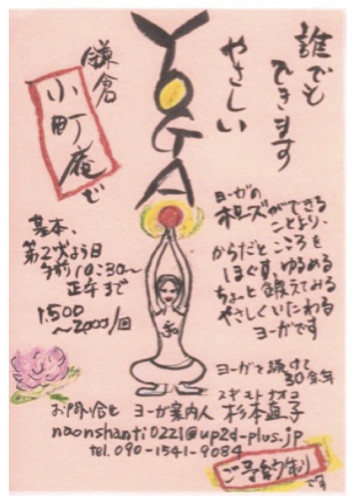 誰でも
できます
やさしい
YOGA
鎌倉
小町庵で
基本、
第2火よう日
午前10:30〜
正午まで
1,500
〜2000/回
ヨーガの
ポーズができる
ことより、
からだと こころを
ほぐす、ゆるめる
ちょっと鍛えてみる
やさしくいたわる
ヨーガです
ヨーガを続けて
30余年
お問い合せ ヨーガ案内人 杉本直子
スギモト ナオコ
naonshanti0221@up2d-plus.jp
tel.090-1541-9084
ご予約制です